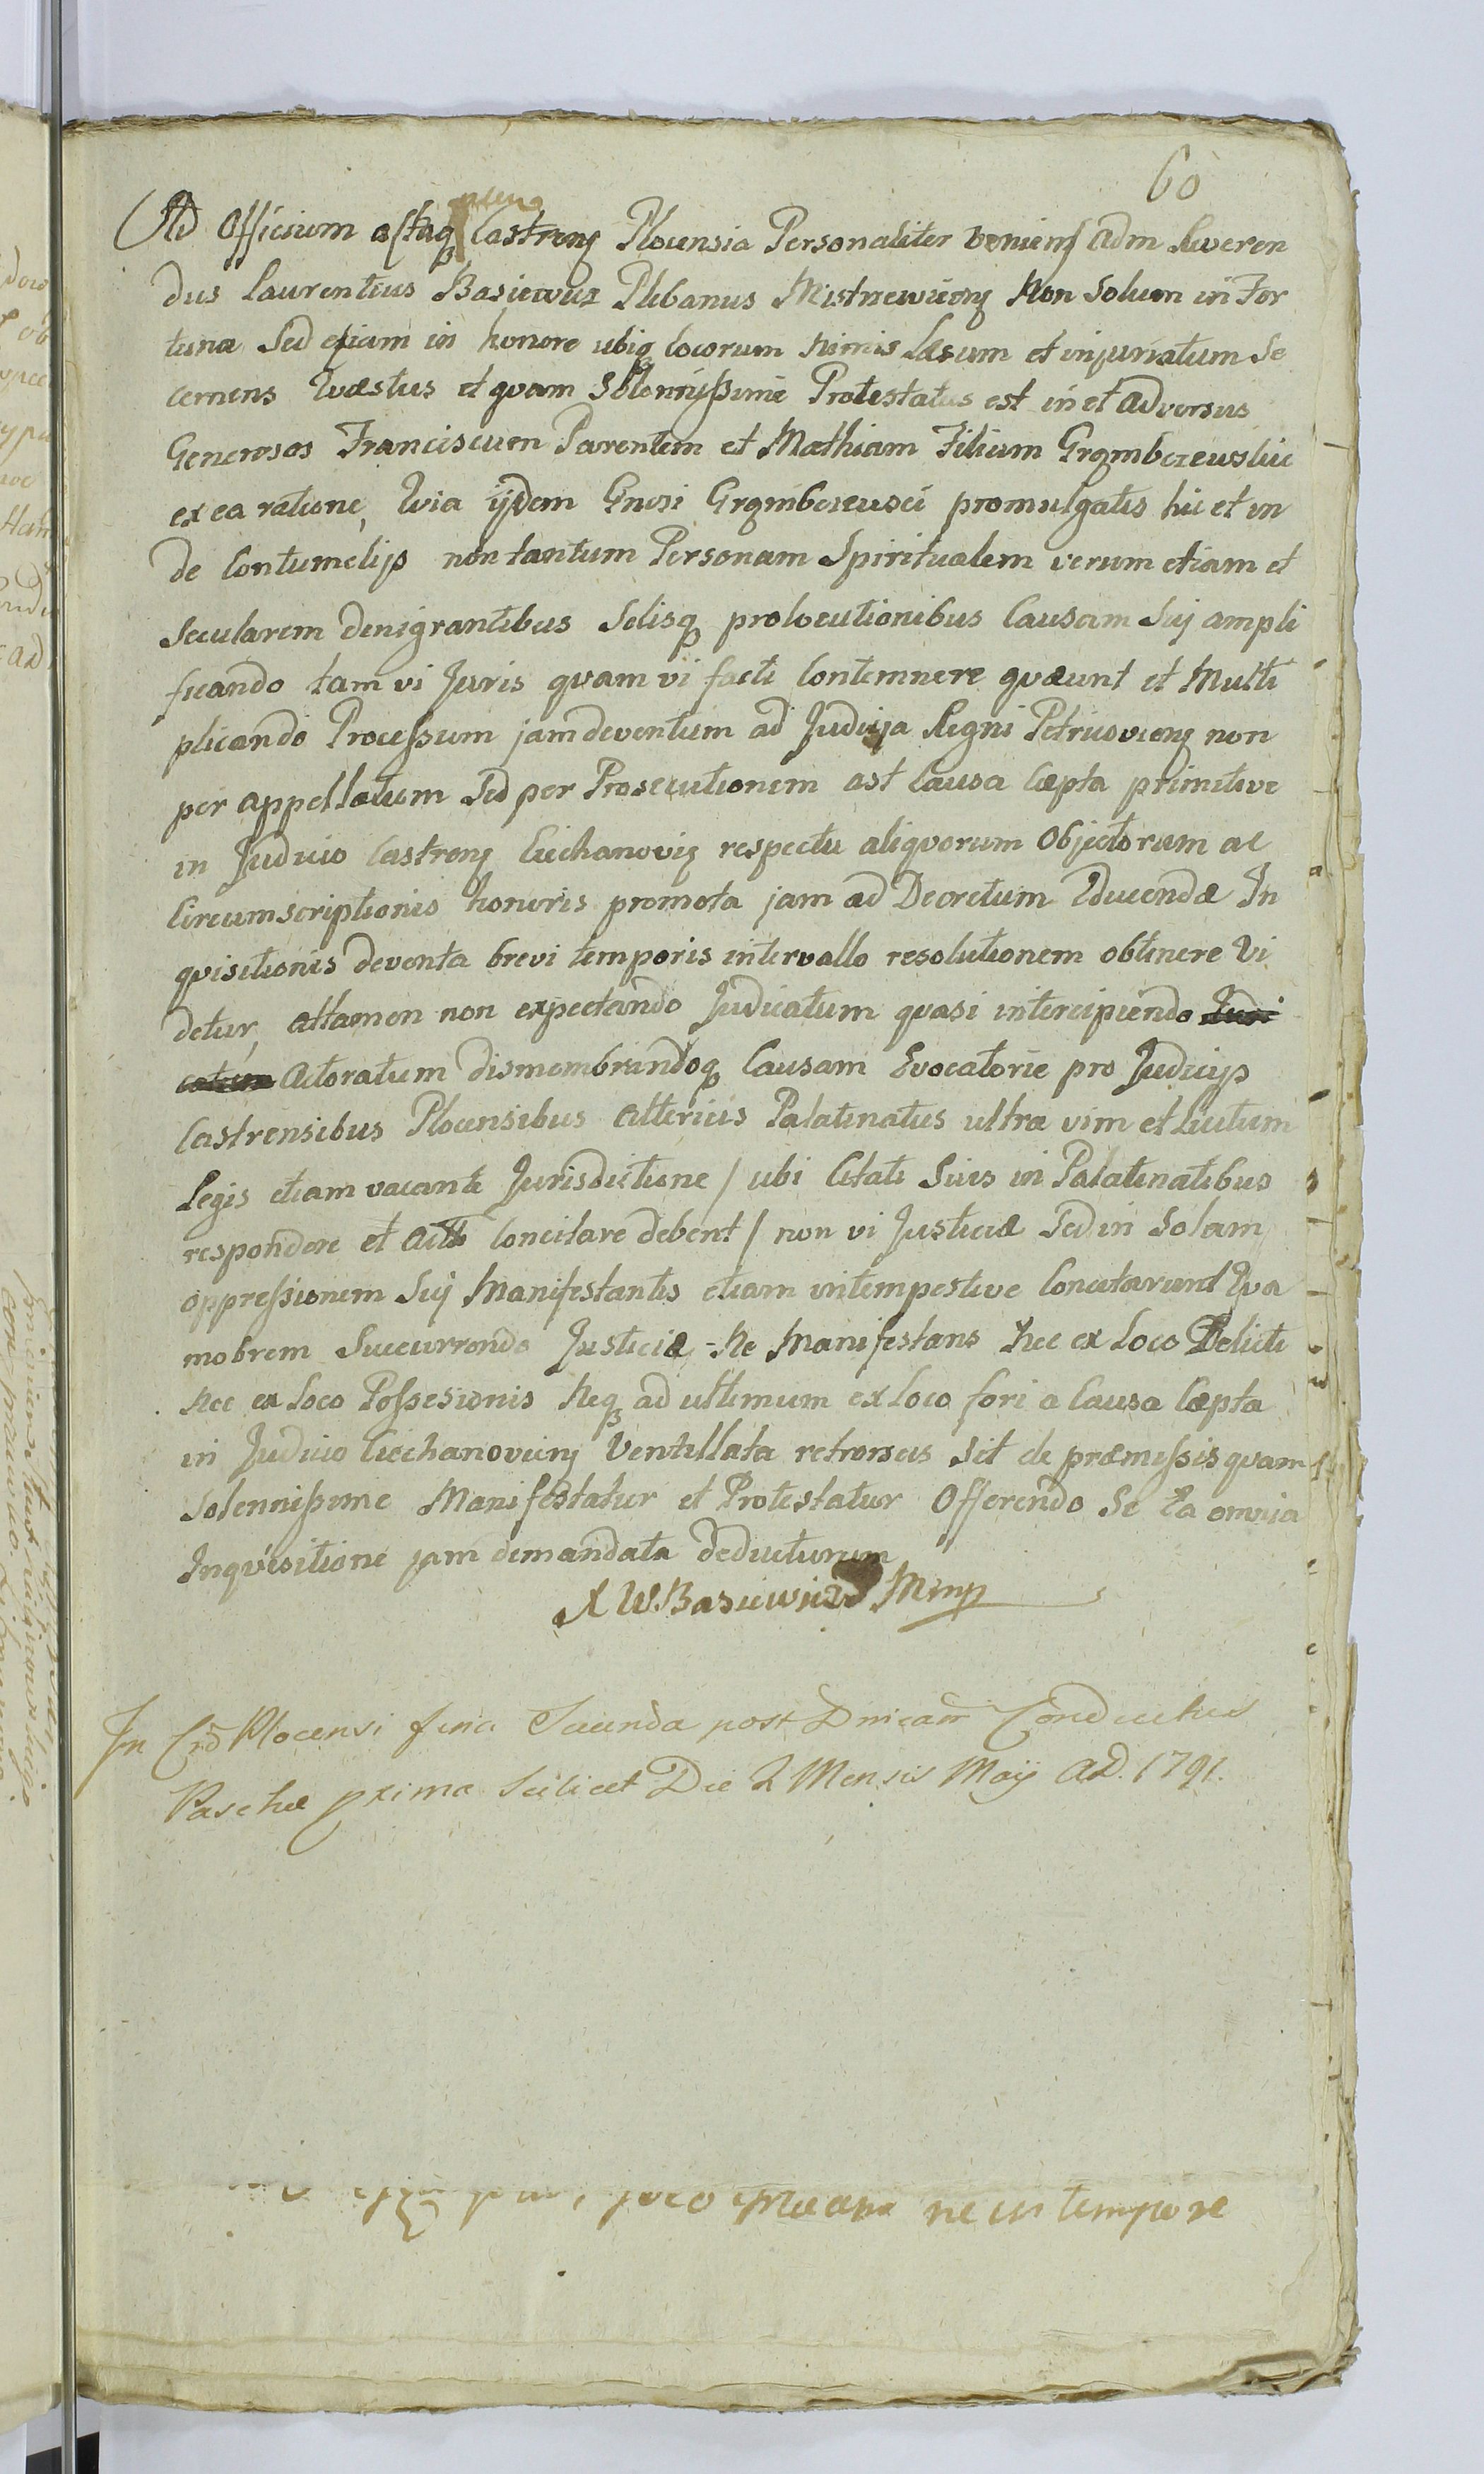 60
Ad Officium actaq Castreng Plocensia Personaliter veniens Adm Reveren
dus Laurentius Basiewicz Plebanus Mistrzewieng Non Solum in For
tuna Sed etiam in honore ubiq locorum nimis Læsum et injuriatum Se
cernens Quæstus et quam Solennissime Protestatus est in et adversus
Generosos Franciscum Parentem et Mathiam Filium Grąmbczewskie
ex ea ratione, Quia ijdem Gnosi Grąmbczewsci promulgatis hic et in
de Contumelijs non tantum Personam Spiritualem verum etiam et
Secularem denigrantibus Solisq prolocutionibus Causam Sui ampli
ficando tam vi Juris quam vi facti Contemnere quæunt et Multi
plicando Processum jam deventum ad Judicia Regni Petricovieng non
per appellatum Sed per Prosecutionem ast Causa Cæpta primitive
in Judicio Castreng Ciechanovieng respectu aliquorum Objectorum ac
Circumscriptionis honoris promota jam ad Decretum Educendæ In
quisitionis deventa brevi temporis intervallo resolutionem obtinere Vi
detur, attamen non expectando Judicatum quasi intercipiendo Judi
catum Actoratum dismembrandoq Causam Evocatorie pro Judicijs
Castrensibus Plocensibus alterius Palatinatus ultra vim et Licitum
Legis etiam vacante Jurisdictione / ubi Citati Suis in Palatinatibus
respondere et Concitare debent / non vi Justiciæ Sed in Solam
oppressionem Sui Manifestantis etiam intempestive Concitarunt Qua
mobrem Succurrendo Justiciæ Ne Manifestans Nec ex Loco Delicti
Nec ex Loco Possesionis Neq ad ultimum ex Loco fori a Causa Cæpta
in Judicio Ciechanovieng Ventillata retrorsus Sit de præmissis quam
Solennissime Manifestatur et Protestatur Offerendo Se Ea omnia
Inquisitione jam demandata deducturum
X W. Basiewicz Mmp
In Crd Plocensi feria Secunda post Dnicam Conductus
Paschæ prima Scilicet Die 2 Mensis Maij AD. 1791.
ne in tempore